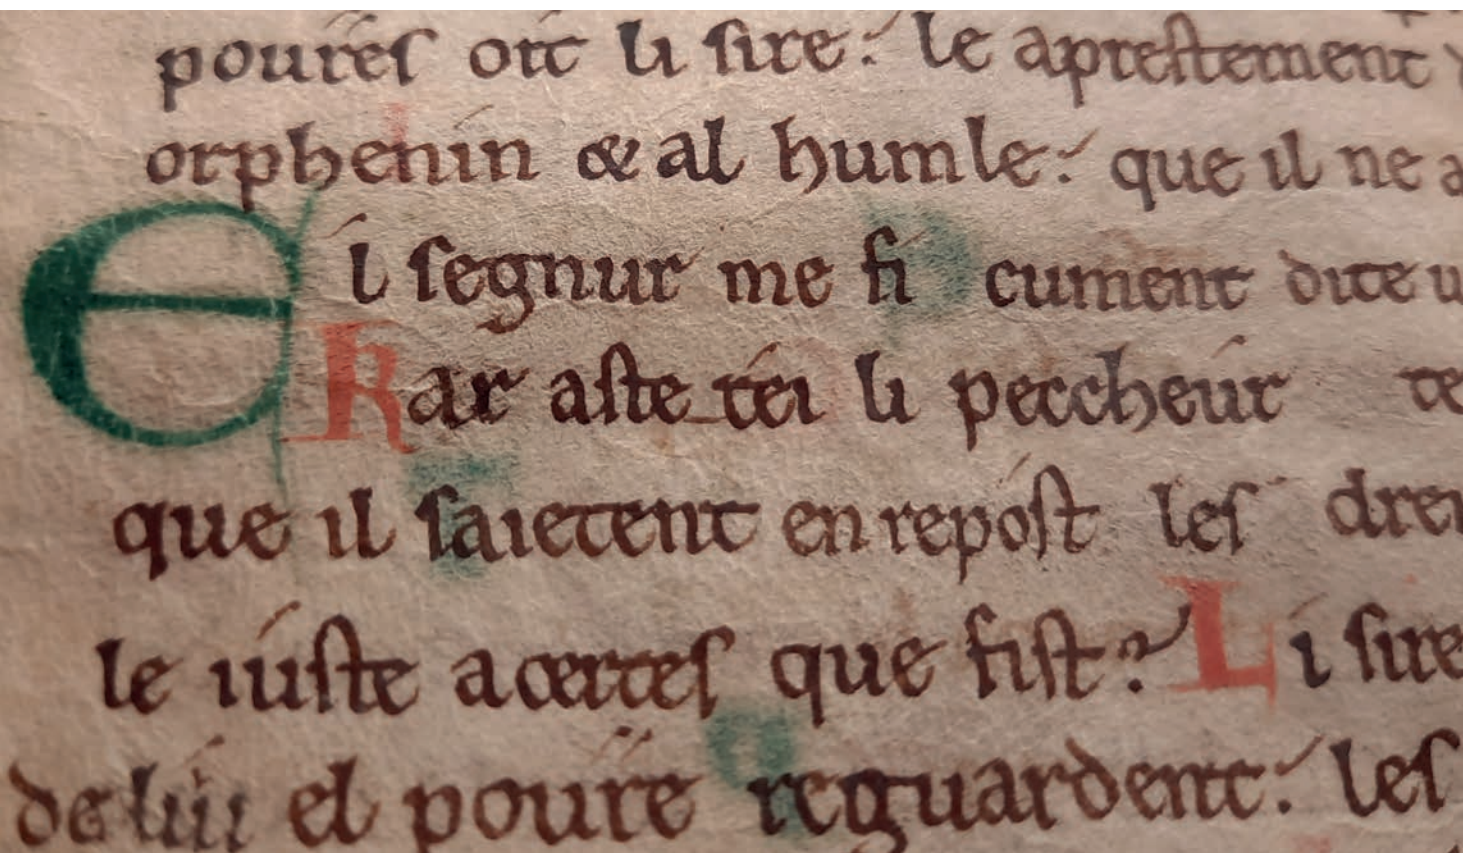 poures oit li sire: le aprestement
orphenin & al humle: que il ne a
El segnur me fi cument dite u
Kar aste tei li peccheur te
que il saietent en repost les drei
le iuste acertes que fist? Li sire
de lui el poure reguardent: les